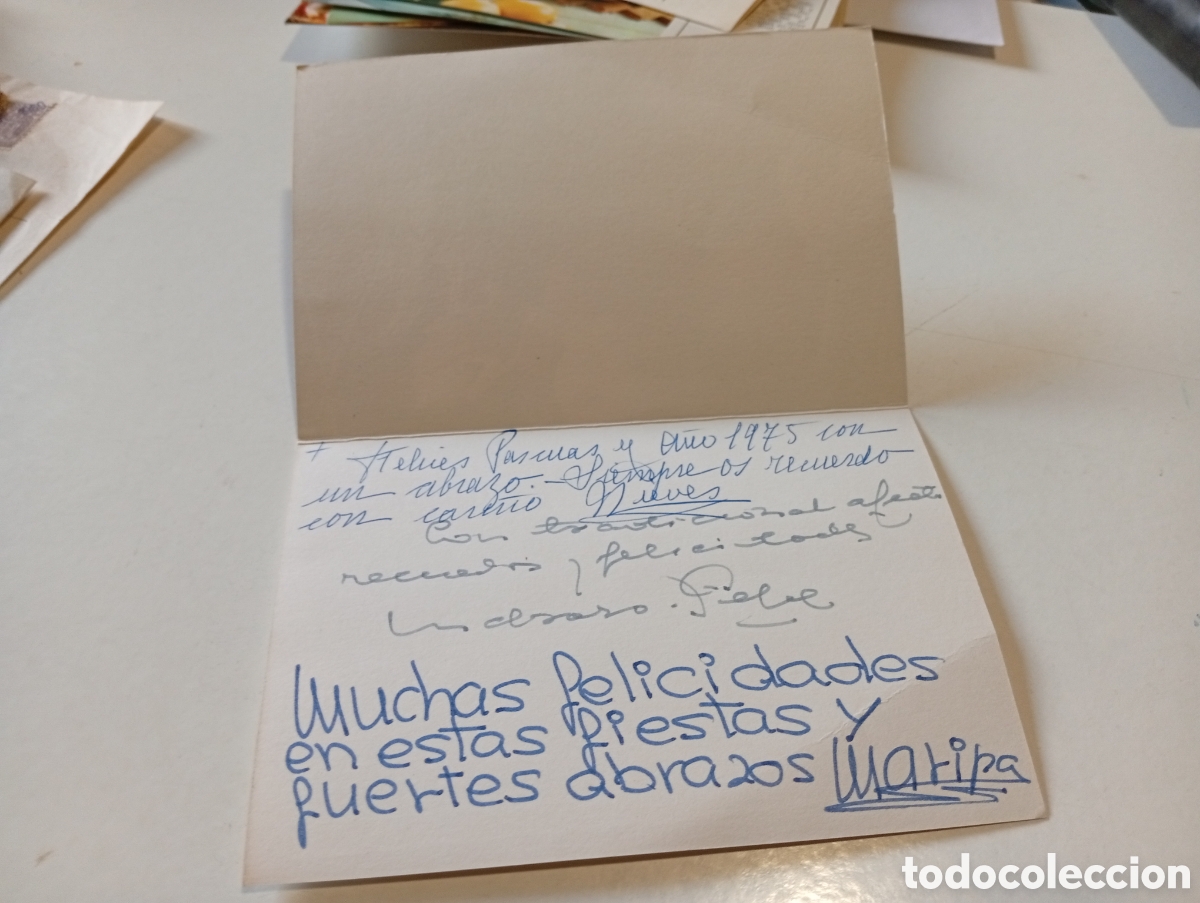 + Felices Pascuas y año 1975 con
un abrazo. - Siempre os recuerdo
con cariño Nieves
Con tradicional afecto
recuerdos y felicidades
Un abrazo. Pepe
Muchas felicidades
en estas fiestas y
fuertes abrazos Maripa
todocoleccion